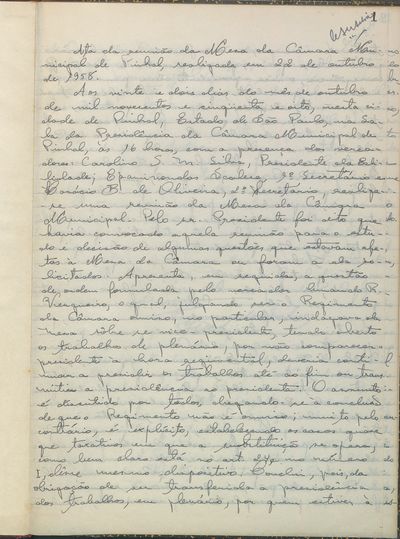 Ata da reunião da Mesa da Câmara Mu-
nicipal de Pinhal, realizada em 22 de outubro
de 1958.
Aos vinte e dois dias do mês de outubro
de mil novecentos e cinquenta e oito, nesta ci-
dade de Pinhal, Estado de São Paulo, na Sa-
la da Presidência da Câmara Municipal de
Pinhal, às 16 horas, com a presença dos verea-
dores: Carolino S. M. Silva, Presidente da Edi-
lidade; Epaminondas Scalera, 1º Secretário e
Horácio B. de Oliveira, 2º Secretário, realiza-
se uma reunião da Mesa da Câmara
Municipal. Pelo sr. Presidente foi dito que
havia convocado aquela reunião para o estu-
do e decisão de algumas questões, que estavam afe-
tas à Mesa da Câmara ou foram a ela so-
licitadas. Apresenta, em seguida, a questão
de ordem formulada pelo vereador R.
Vergueiro, o qual, julgando ser o Regimento
da Câmara omisso, no particular, indagava da
Mesa, sôbre se vice-presidente, tendo aberto
os trabalhos de plenário, por não comparecer o
presidente a hora regimental, deveria conti-
nuar a presidir os trabalhos até ao fim ou trans-
mitir a presidência ao presidente. O assunto
é discutido por todos, chegando-se à conclusão
de que o Regimento não é omisso; muito pelo
contrário, é explícito, estabelecendo os casos quase
que taxativos em que a substituição se opera,
como bem claro está no art. no número
I, dêsse mesmo dispositivo. Conclui, pois, da
obrigação de ser transferida a presidência
dos trabalhos, em plenário, por quem estiver à